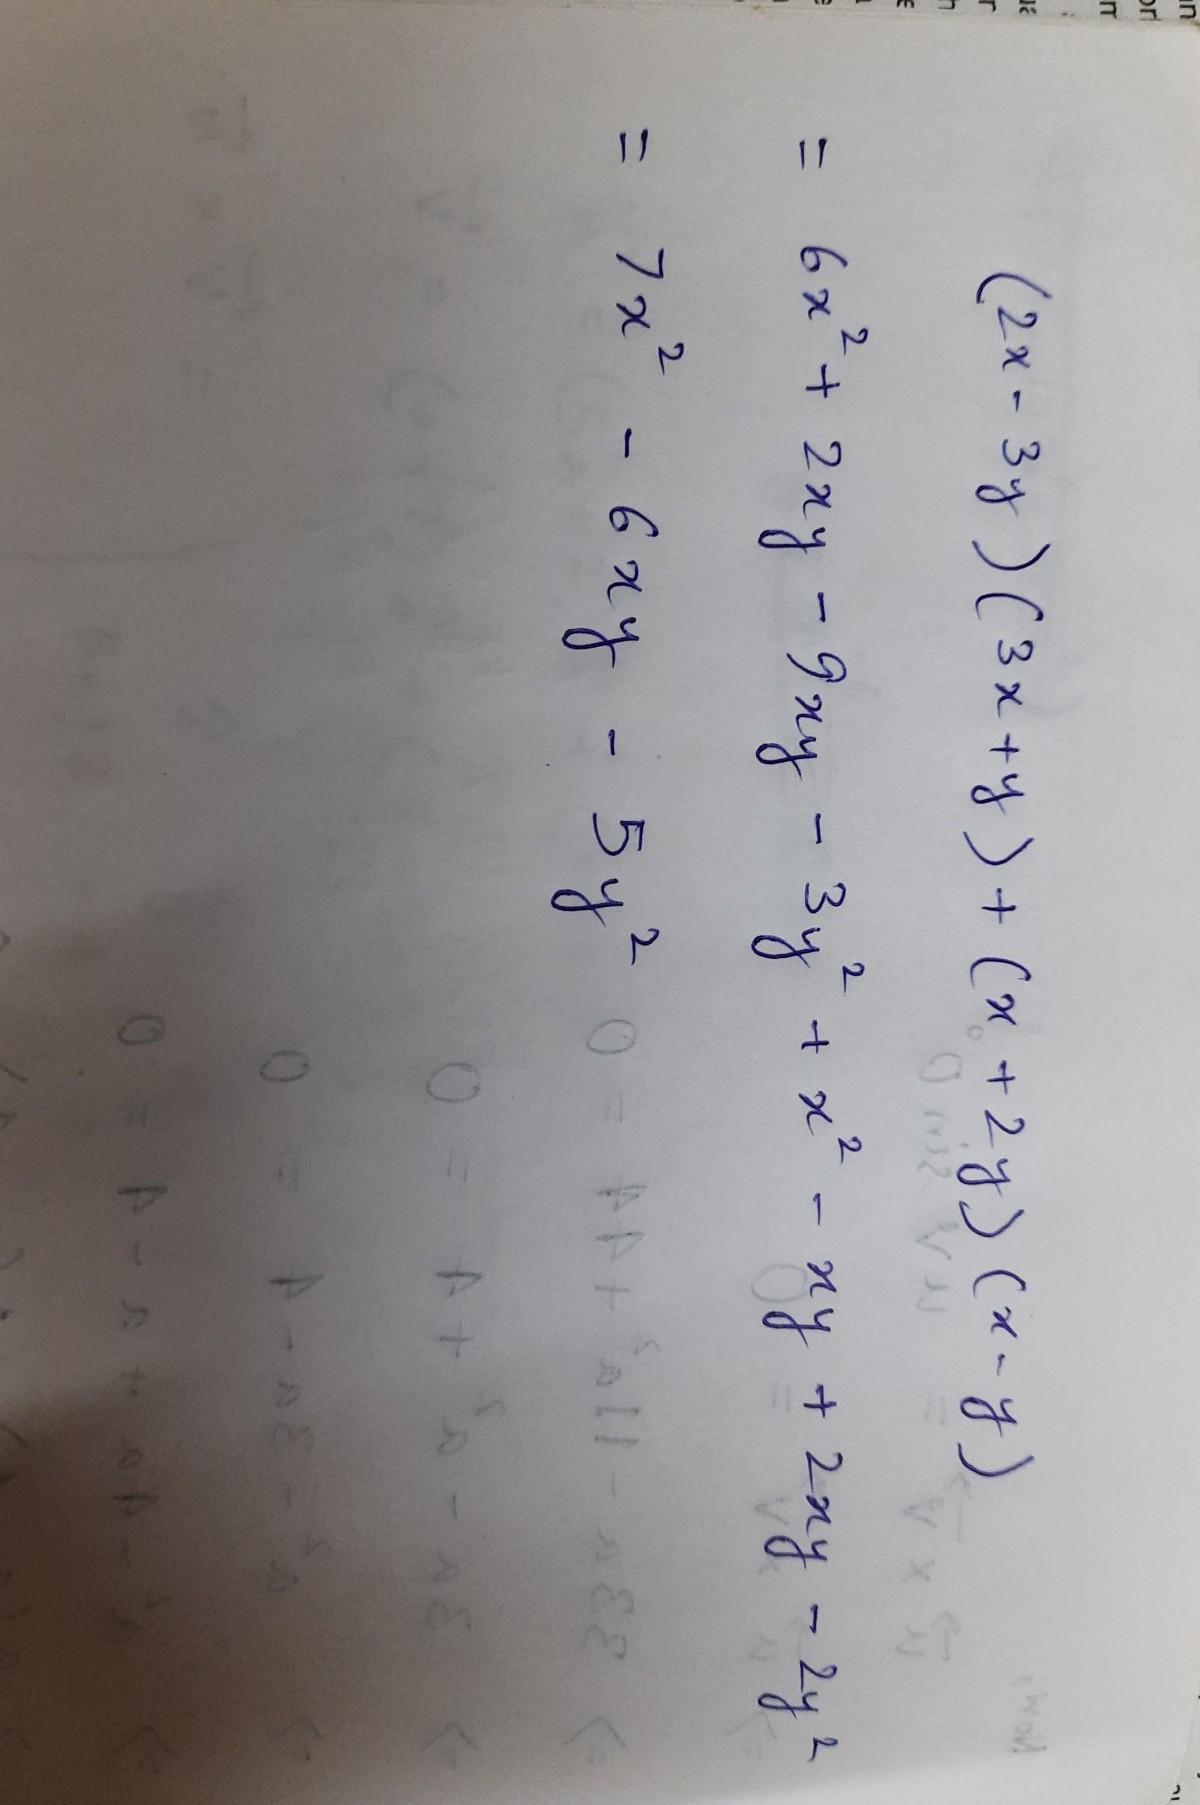 (2x - 3y)(3x + y) + (x + 2y)(x - y)
= 6x² + 2xy - 9xy - 3y² + x² - xy + 2xy - 2y²
= 7x² - 6xy - 5y²